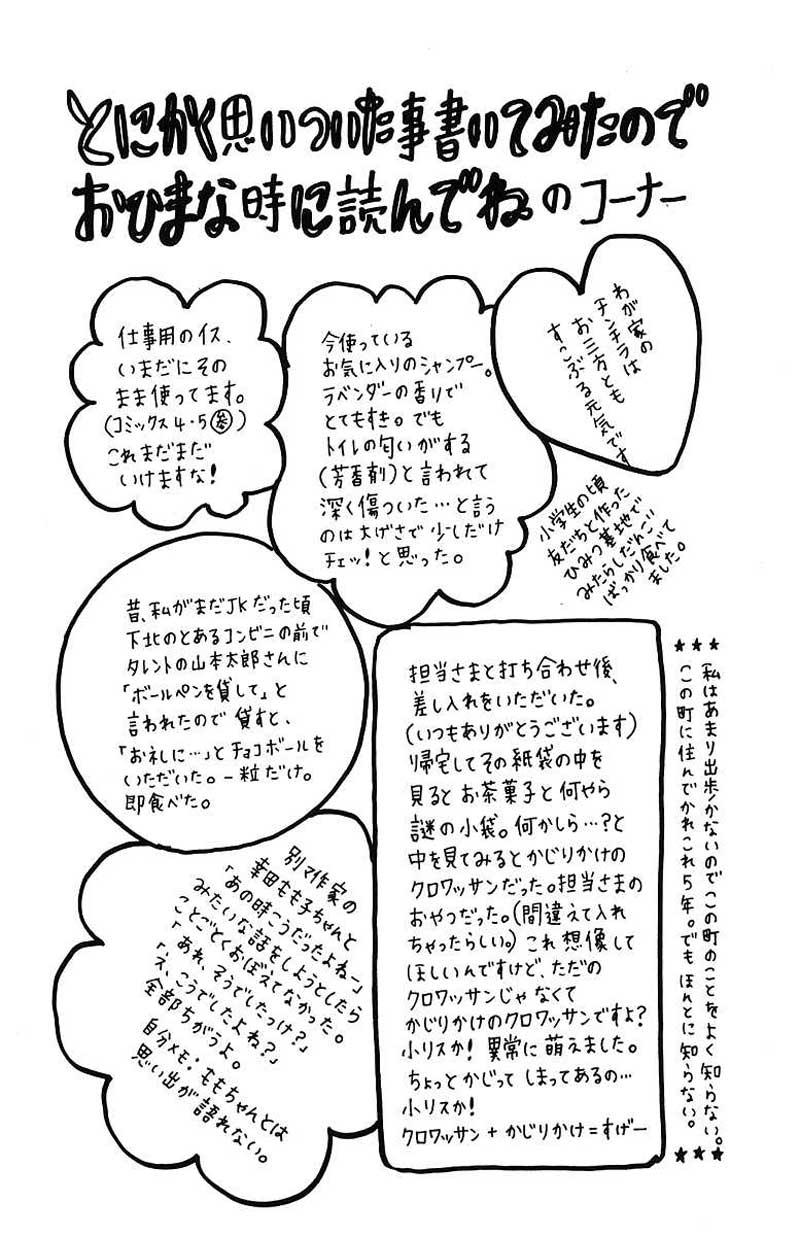 とにかく思いついた事書いてみたので
おひまな時に読んでね。のコーナー
仕事用のイス、
いまだにその
まま使ってます。
(コミックス4・5参)
これまだまだ
いけますな!
今使っている
お気に入りのシャンプー。
ラベンダーの香りで
とてもすき。でも
トイレの匂いがする
(芳香剤)と言われて
深く傷ついた…と言う
のは大げさで少しだけ
チェッ!と思った。
わが家の
チンチラは
お三方とも
すこぶる元気です
小学生の頃
友だちと作った
ひみつ基地で
みたらしだんご
ばっかり食べて
ました。
昔、私がまだJKだった頃
下北のとあるコンビニの前で
タレントの山本太郎さんに
「ボールペンを貸して」と
言われたので貸すと、
「お礼に…」とチョコボールを
いただいた。一粒だけ。
即食べた。
担当さまと打ち合わせ後、
差し入れをいただいた。
(いつもありがとうございます)
帰宅してその紙袋の中を
見るとお茶菓子と何やら
謎の小袋。何かしら…?と
中を見てみるとかじりかけの
クロワッサンだった。担当さまの
おやつだった。(間違えて入れ
ちゃったらしい。)これ想像して
ほしいんですけど、ただの
クロワッサンじゃなくて
かじりかけのクロワッサンですよ?
小リスか!異常に萌えました。
ちょっとかじってしまってあるの…
小リスか!
クロワッサン+かじりかけ=すげー
★★★
私はあまり出歩かないのでこの町のことをよく知らない。
この町に住んでかれこれ5年。でもほんとに知らない。
★★★
別マ作家の
幸田もも子ちゃんと
「あの時こうだったよねー」
みたいな話をしようとしたら
ことごとくおぼえてなかった。
「あれ、そうでしたっけ?」
「え、こうでしたよね?」
全部ちがうよ。
自分メモ・ももちゃんとは
思い出が語れない。